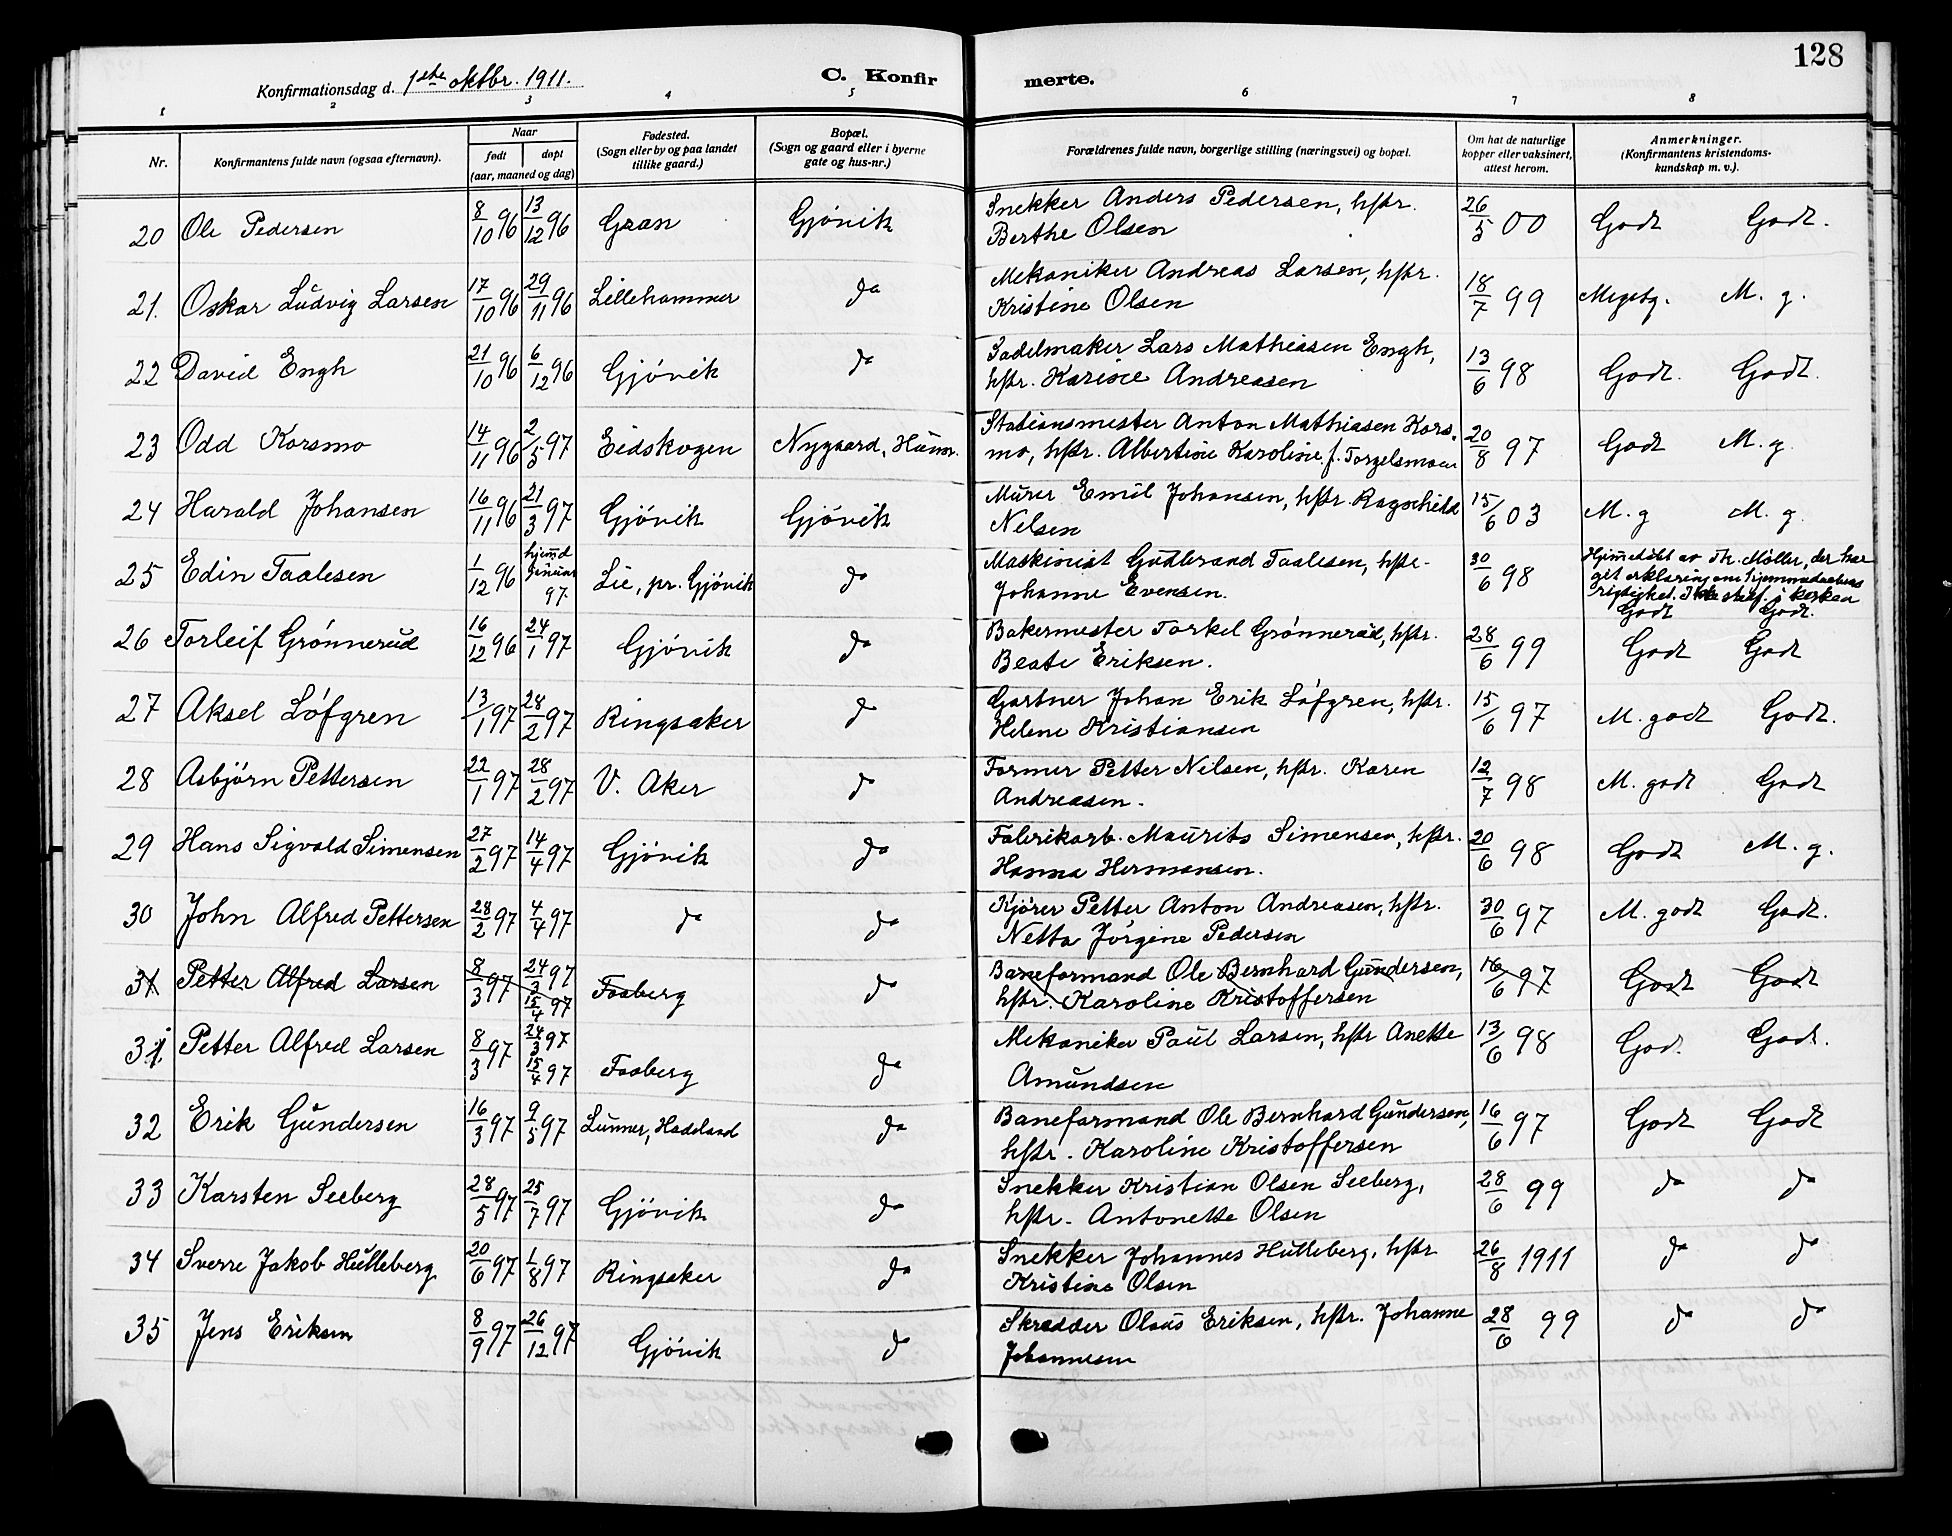 128
Konfirmationsdag d. 1ste oktbr. 1911.
C. Konfirmerte.
1 2 3 4 5 6 7 8
Nr.
Konfirmantens fulde navn (ogsaa efternavn).
Naar
født
døpt
(aar, maaned og dag)
Fødested.
(Sogn eller by og paa landet
tillike gaard.)
Bopæl.
(Sogn og gaard eller i byerne
gate og hus-nr.)
Forældrenes fulde navn, borgerlige stilling (næringsvei) og bopæl.
Om hat de naturlige
kopper eller vaksinert,
attest herom.
Anmerkninger.
(Konfirmantens kristendoms-
kundskap m. v.).
20 Ole Pedersen 8/10 96 13/12 96 Gran Gjövik Snekker Anders Pedersen, hstr. 26/5 00 Godt Godt.
Berthe Olsen
21. Oskar Ludvig Larsen 17/10 96 29/11 96 Lillehammer do Mekaniker Andreas Larsen, hstr. 18/7 99 Megetg. M. g.
Kristine Olsen
22 David Engh 21/10 96 6/12 96 Gjövik do Sadelmaker Lars Mathiasen Engh, 13/6 98 Godt. Godt.
hstr. Karine Andreasen
23 Odd Korsmo 14/11 96 2/5 97 Eidskogen Nygaard, Hunn. Stationsmester Anton Mathiasen Kors- 20/8 97 Godt M. g.
mo, hstr. Albertine Karoline f. Torgelsmoen
24 Harald Johansen 16/11 96 21/3 97 Gjövik Gjövik Murer Emil Johansen, hstr. Ragnhild 15/6 03 M. g M. g.
Nelsen
25 Edin Taalesen 1/12 96 hjemd Januar 97 Lie, pr. Gjövik do Maskinist Gudbrand Taalesen, hstr. 30/6 98 Hjemedöbt av Th. Möller, der har
git erklæring om hjemmedaabens
rigtighet. Ikke stadf. i kirken
Johanne Evensen. Godt Godt.
26 Torleif Grønnerud 16/12 96 24/1 97 Gjövik do Bakermester Torkel Grønnerud, hstr. 28/6 99 Godt Godt
Beate Eriksen.
27 Aksel Löfgren 13/1 97 28/2 97 Ringsaker do Gartner Johan Erik Löfgren, hstr. 15/6 97 M. godt Godt.
Helene Kristiansen
28 Asbjörn Pettersen 22/1 97 28/2 97 V. Aker do Former Petter Nilsen, hstr. Karen 12/7 98 M. godt Godt
Andreasen.
29 Hans Sigvald Simensen 27/2 97 14/4 97 Gjövik do Fabrikarb. Maurits Simensen, hstr. 20/6 98 Godt M. g.
Hanna Hermansen.
30 John Alfred Pettersen 28/2 97 4/4 97 do do Kjörer Petter Anton Andreasen, hstr. 30/6 97 M. godt Godt.
Netta Jörgine Pedersen
31 Petter Alfred Larsen 8/3 97 24/3 97 15/4 97 Faaberg do Baneformand Ole Bernhard Gundersen, 16/6 97 Godt Godt
hstr. Karoline Kristoffersen
31. Petter Alfred Larsen 8/3 97 24/3 97 15/4 97 Faaberg do Mekaniker Paul Larsen, hstr Anette 13/6 98 God. Godt.
Amundsen
32 Erik Gundersen 16/3 97 9/5 97 Lunner, Hadeland do Baneformand Ole Bernhard Gundersen, 16/6 97 Godt Godt
hstr. Karoline Kristoffersen
33 Karsten Seeberg 28/5 97 25/7 97 Gjövik do Snekker Kristian Olsen Seeberg, 28/6 99 do do
hstr. Antonette Olsen
34 Sverre Jakob Hulleberg 20/6 97 1/8 97 Ringsaker do Snekker Johannes Hulleberg, hstr 26/8 1911 do do
Kristine Olsen
35 Jens Eriksen 8/9 97 26/12 97 Gjövik do Skrædder Olaus Eriksen, hstr. Johanne 28/6 99 do do
Johannesen